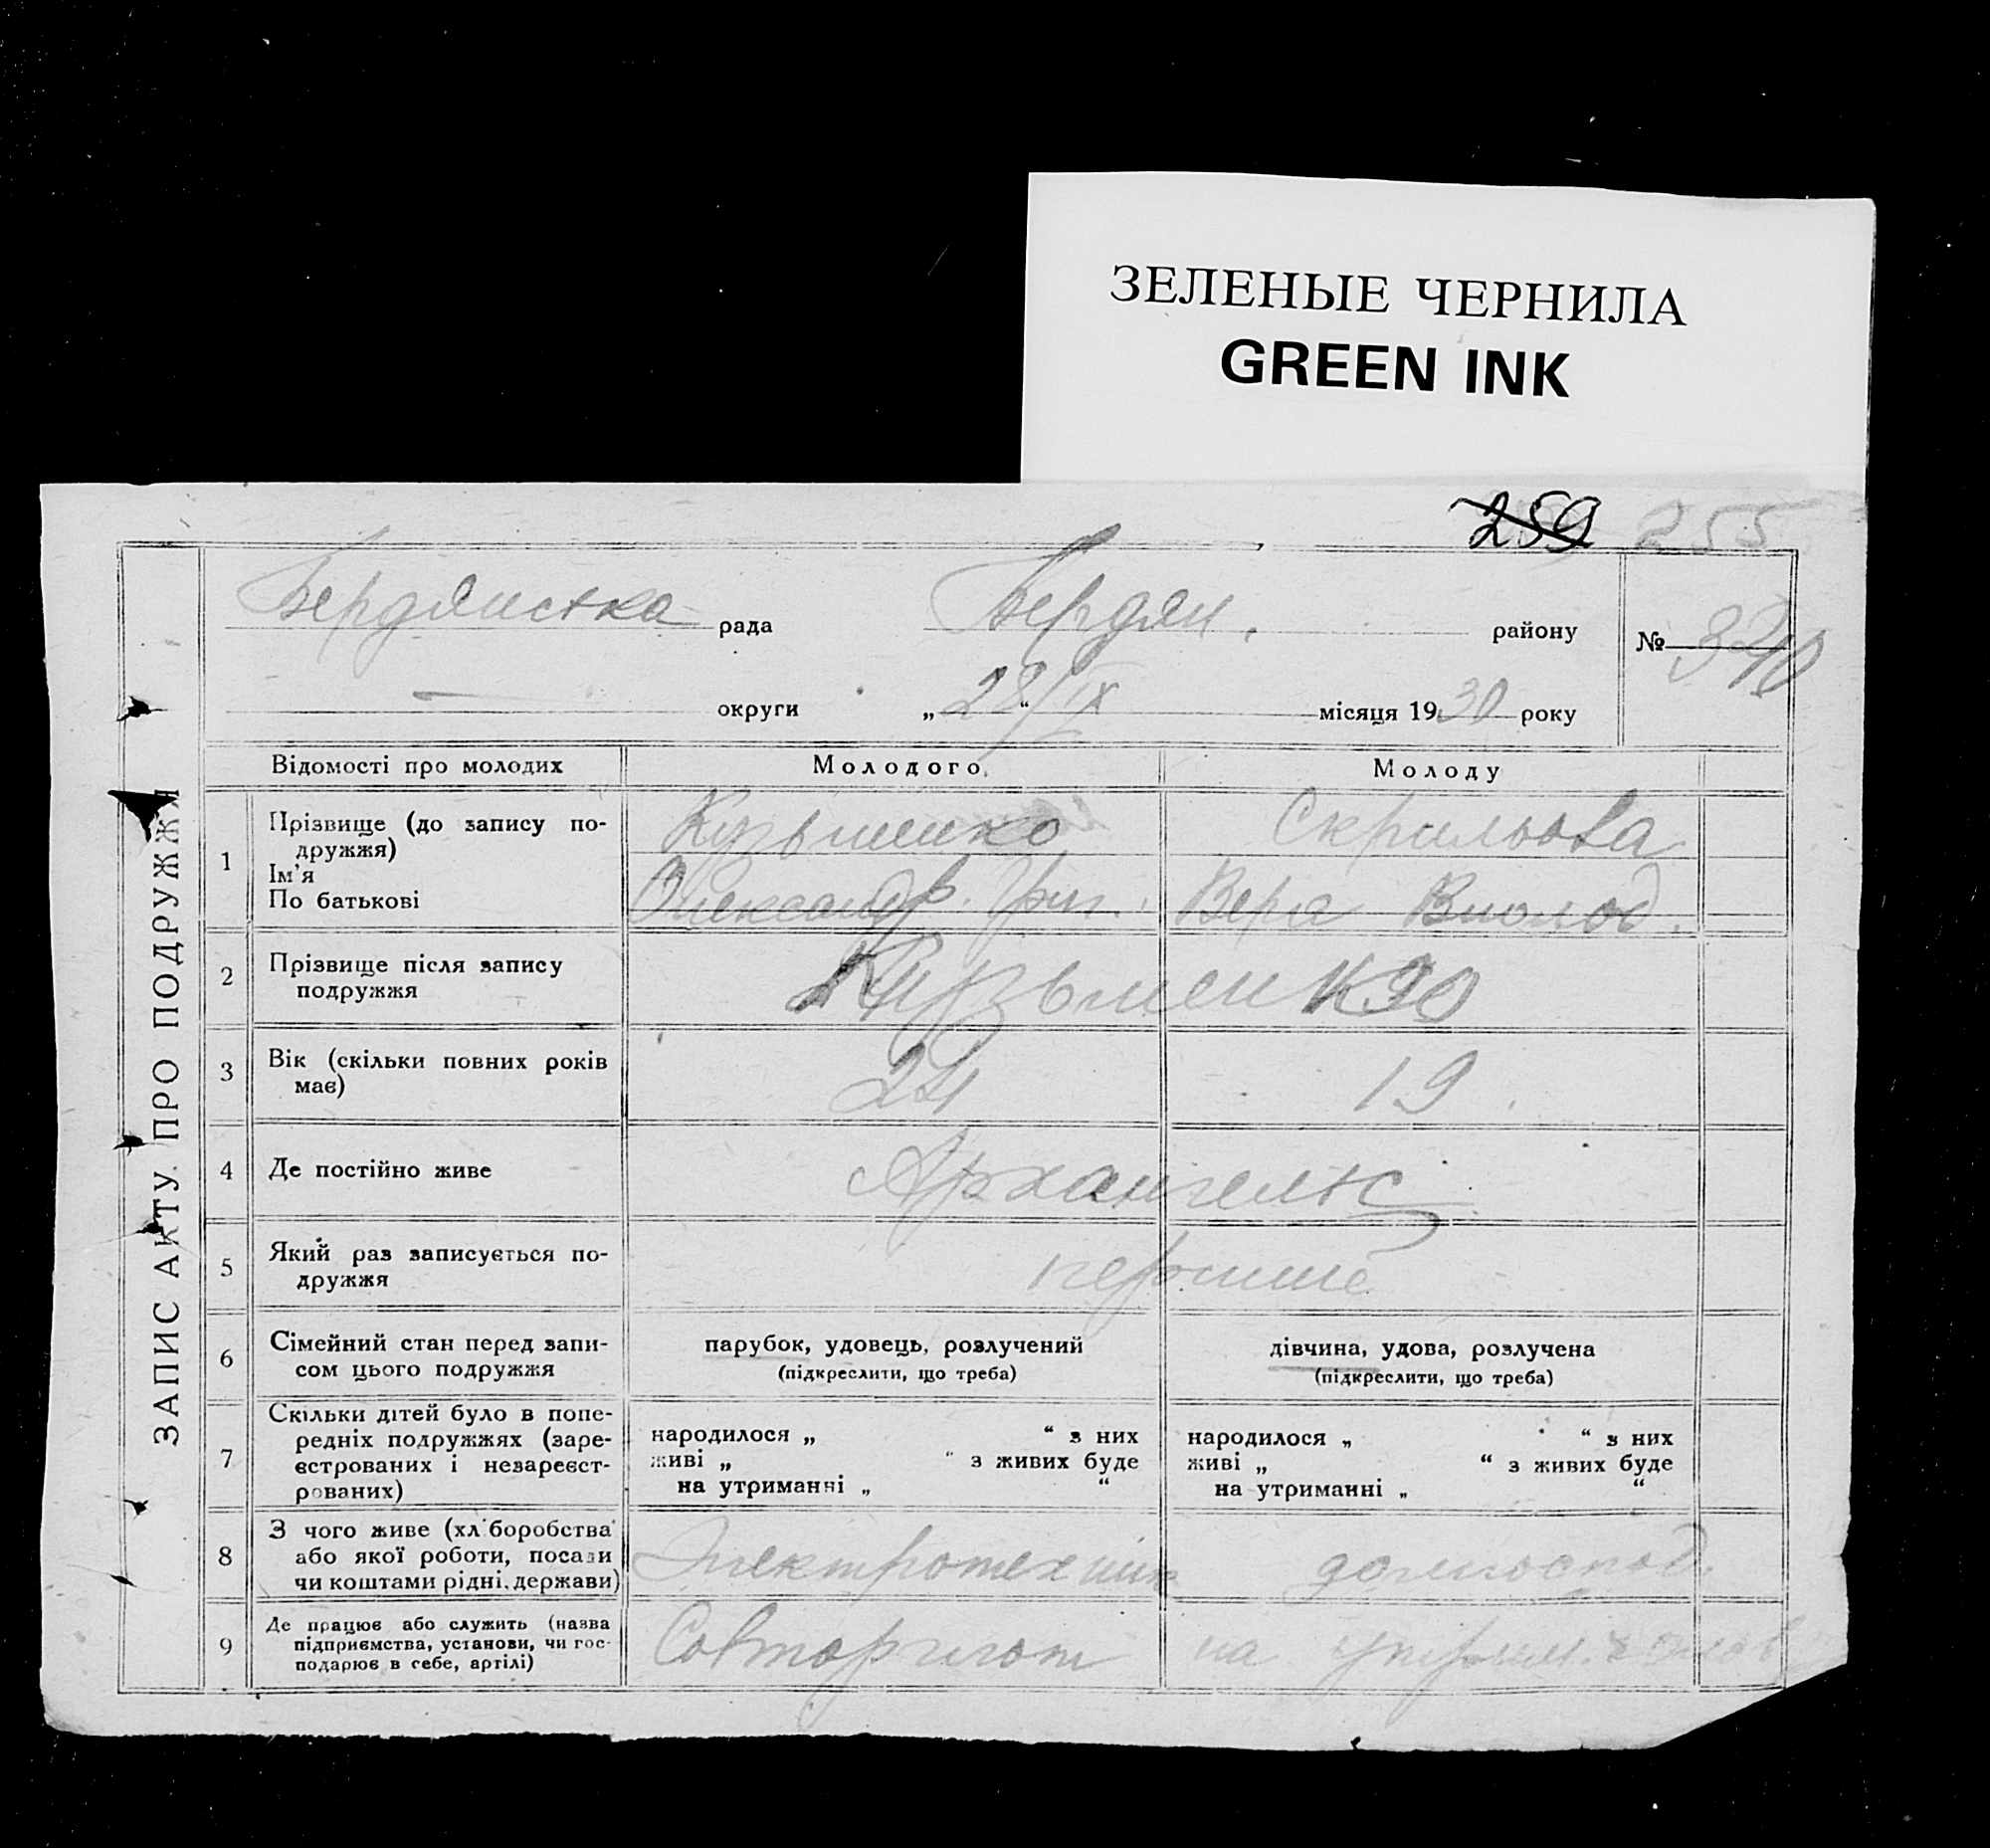 ЗЕЛЕНЫЕ ЧЕРНИЛА
GREEN INK
259 255
Бердянська рада Бердян. району № 340
— округи „28/IX“ місяця 1930 року
ЗАПИС АКТУ ПРО ПОДРУЖЖЯ
Відомості про молодих Молодого Молоду
1 Прізвище (до запису по-
дружжя) Кузьменко Скрильова
Ім'я
По батькові Олександр. Григ. Вера Волод.
2 Прізвище після запису
подружжя Кузьменко
3 Вік (скільки повних років
має) 24 19
4 Де постійно живе Архангельс
5 Який раз записується по-
дружжя перший
6 Сімейний стан перед запи-
сом цього подружжя
парубок, удовець, розлучений
(підкреслити, що треба)
дівчина, удова, розлучена
(підкреслити, що треба)
7 Скільки дітей було в попе-
редніх подружжях (заре-
єстрованих і незареєст-
рованих)
народилося „ “ з них
живі „ “ з живих буде
на утриманні „ “
народилося „ “ з них
живі „ “ з живих буде
на утриманні „ “
8 З чого живе (хліборобства
або якої роботи, посади
чи коштами рідні, держави) Электротехник домгоспод.
9 Де працює або служить (назва
підприємства, установи, чи гос-
подарює в себе, артілі) Совторгфлот на утрим. чолов